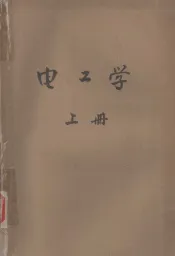 电工学
上册